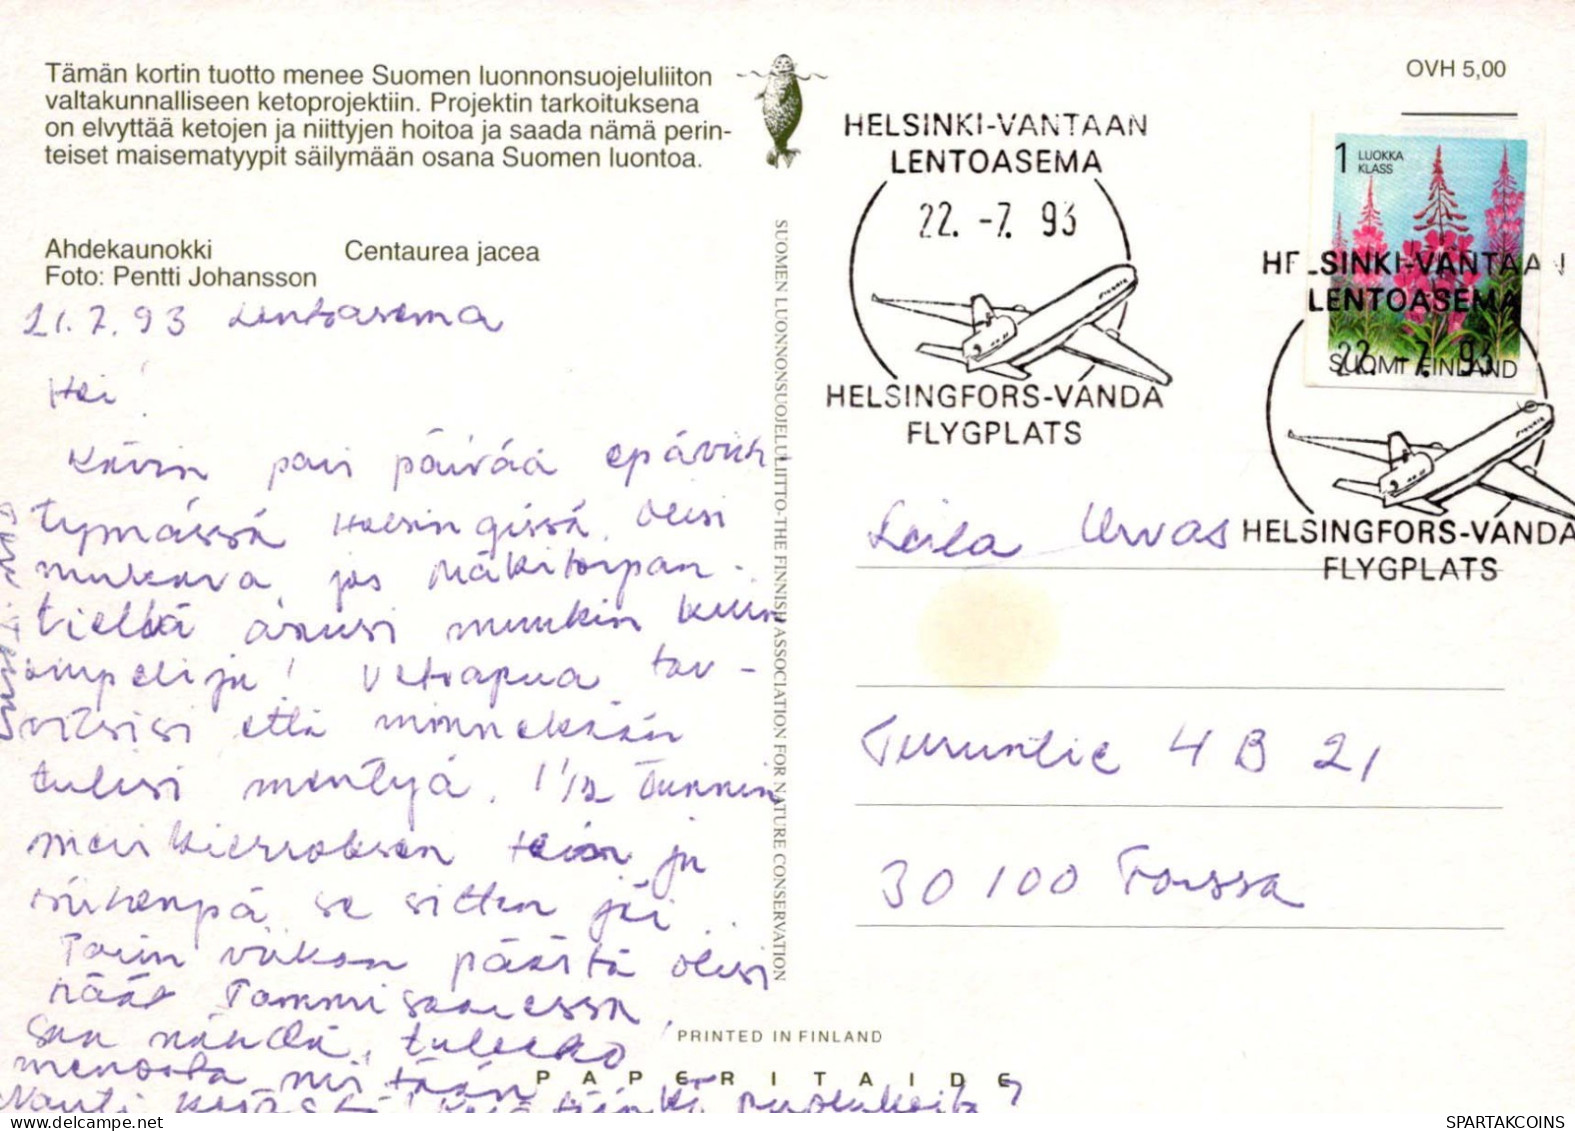 Tämän kortin tuotto menee Suomen luonnonsuojeluliiton
valtakunnalliseen ketoprojektiin. Projektin tarkoituksena
on elvyttää ketojen ja niittyjen hoitoa ja saada nämä perin-
teiset maisematyypit säilymään osana Suomen luontoa.
Ahdekaunokki Centaurea jacea
Foto: Pentti Johansson
21.7.93 Lentoasema
Hei!
Kävin pari päivää epäviih
tymässä Helsingissä. Olisi
mukava, jos Mäkitorpan-
tiellä asuisi muukin kuin
ompelija! Vetoapua tar-
vitsisi että minnekään
tulisi mentyä. 1 1/2 tunnin
merikierroksen tein ja
siihenpä se sitten jäi.
Parin viikon päästä olisi
häät Tammisaaressa.
Saa nähdä, tuleeko
menosta mitään
Nauti kesästä!
SUOMEN LUONNONSUOJELULIITTO-THE FINNISH ASSOCIATION FOR NATURE CONSERVATION
PRINTED IN FINLAND
PAPERITAIDE
OVH 5,00
HELSINKI-VANTAAN
LENTOASEMA
22.-7.93
Finnair
HELSINGFORS-VANDA
FLYGPLATS
1 LUOKKA
KLASS
SUOMI FINLAND
HELSINKI-VANTAAN
LENTOASEMA
22.-7.93
Finnair
HELSINGFORS-VANDA
FLYGPLATS
Leila Urvas
Turuntie 4 B 21
30100 Forssa
SPARTAKCOINS